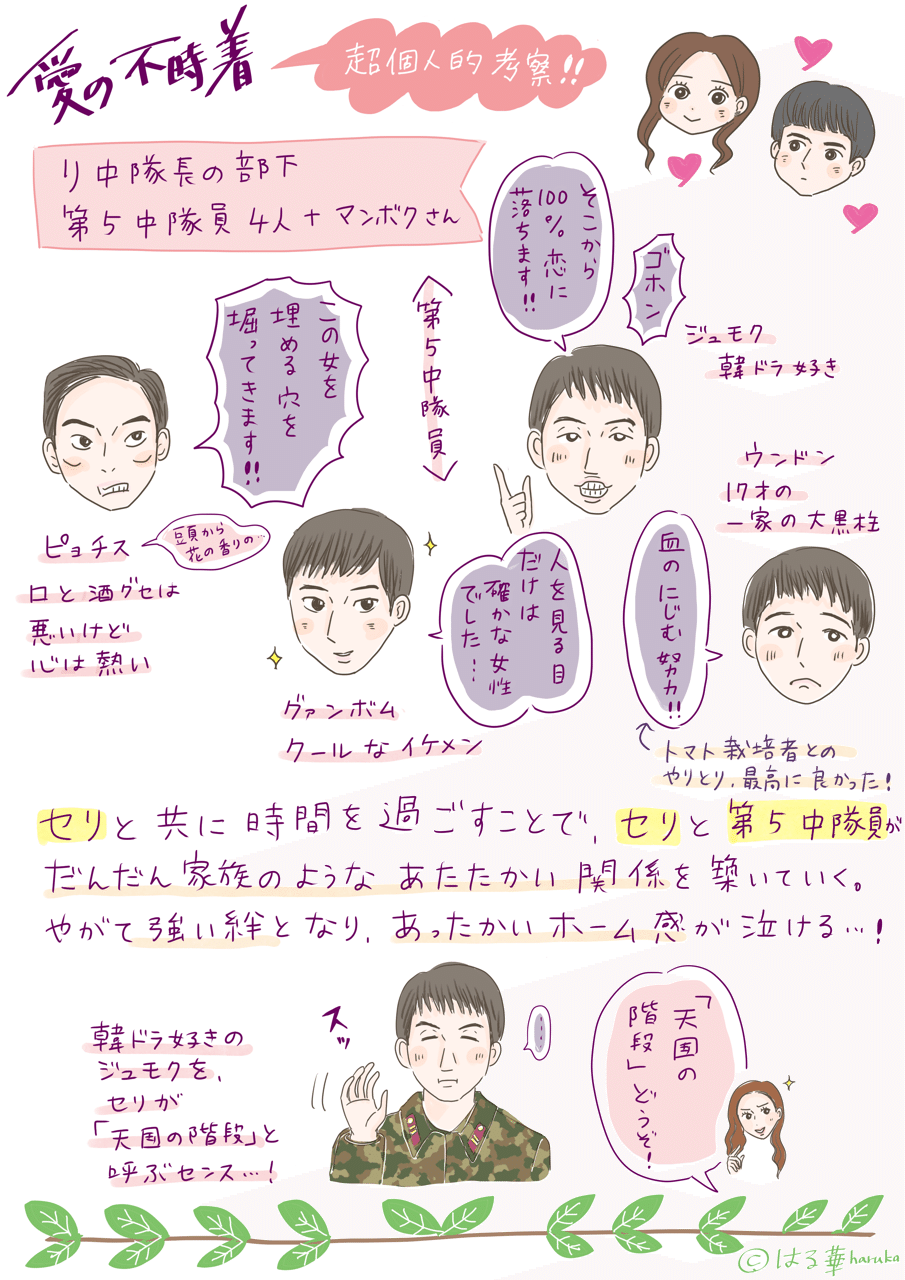 愛の不時着
超個人的考察!!
リ中隊長の部下
第5中隊員4人+マンボクさん
そこから
100%恋に
落ちます!!
ゴホン
ジュモク
韓ドラ好き
第5中隊員
この女を
埋める穴を
堀ってきます!!
ピョチス
豆頁から
花の香りの…
口と酒グセは
悪いけど
心は熱い
人を見る目
だけは
確かな女性
でした…
グァンボム
クールなイケメン
ウンドン
17才の
一家の大黒柱
血のにじむ努力!!
トマト栽培者との
やりとり,最高に良かった!
セリと共に時間を過ごすことで,セリと第5中隊員が
だんだん家族のようなあたたかい関係を築いていく。
やがて強い絆となり,あったかいホーム感が泣ける…!
韓ドラ好きの
ジュモクを,
セリが
「天国の階段」と
呼ぶセンス…!
スッ
....
「天国の
階段」どうぞ!
©はる華haruka